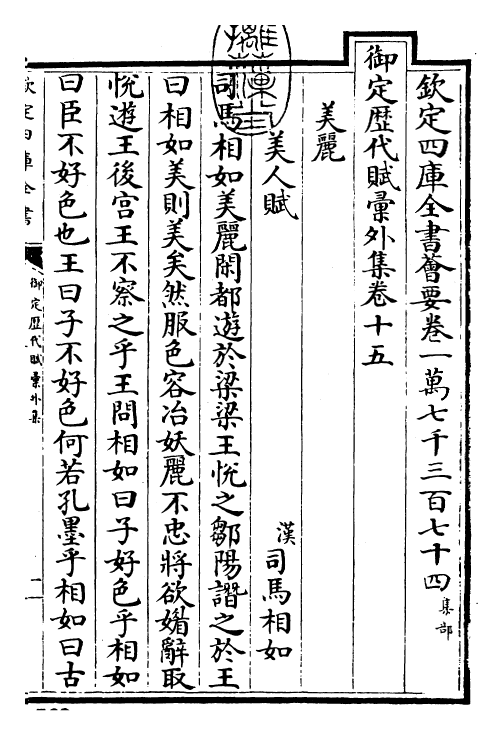 欽定四庫全書薈要卷一萬七千三百七十四集部
御定歷代賦彙外集卷十五
美麗
美人賦 漢司馬相如
司馬相如美麗閑都遊於梁梁王悅之鄒陽譖之於王
曰相如美則美矣然服色容冶妖麗不忠將欲媚辭取
悅遊王後宮王不察之乎王問相如曰子好色乎相如
曰臣不好色也王曰子不好色何若孔墨乎相如曰古
欽定四庫全書
御定歷代賦彙外集
一